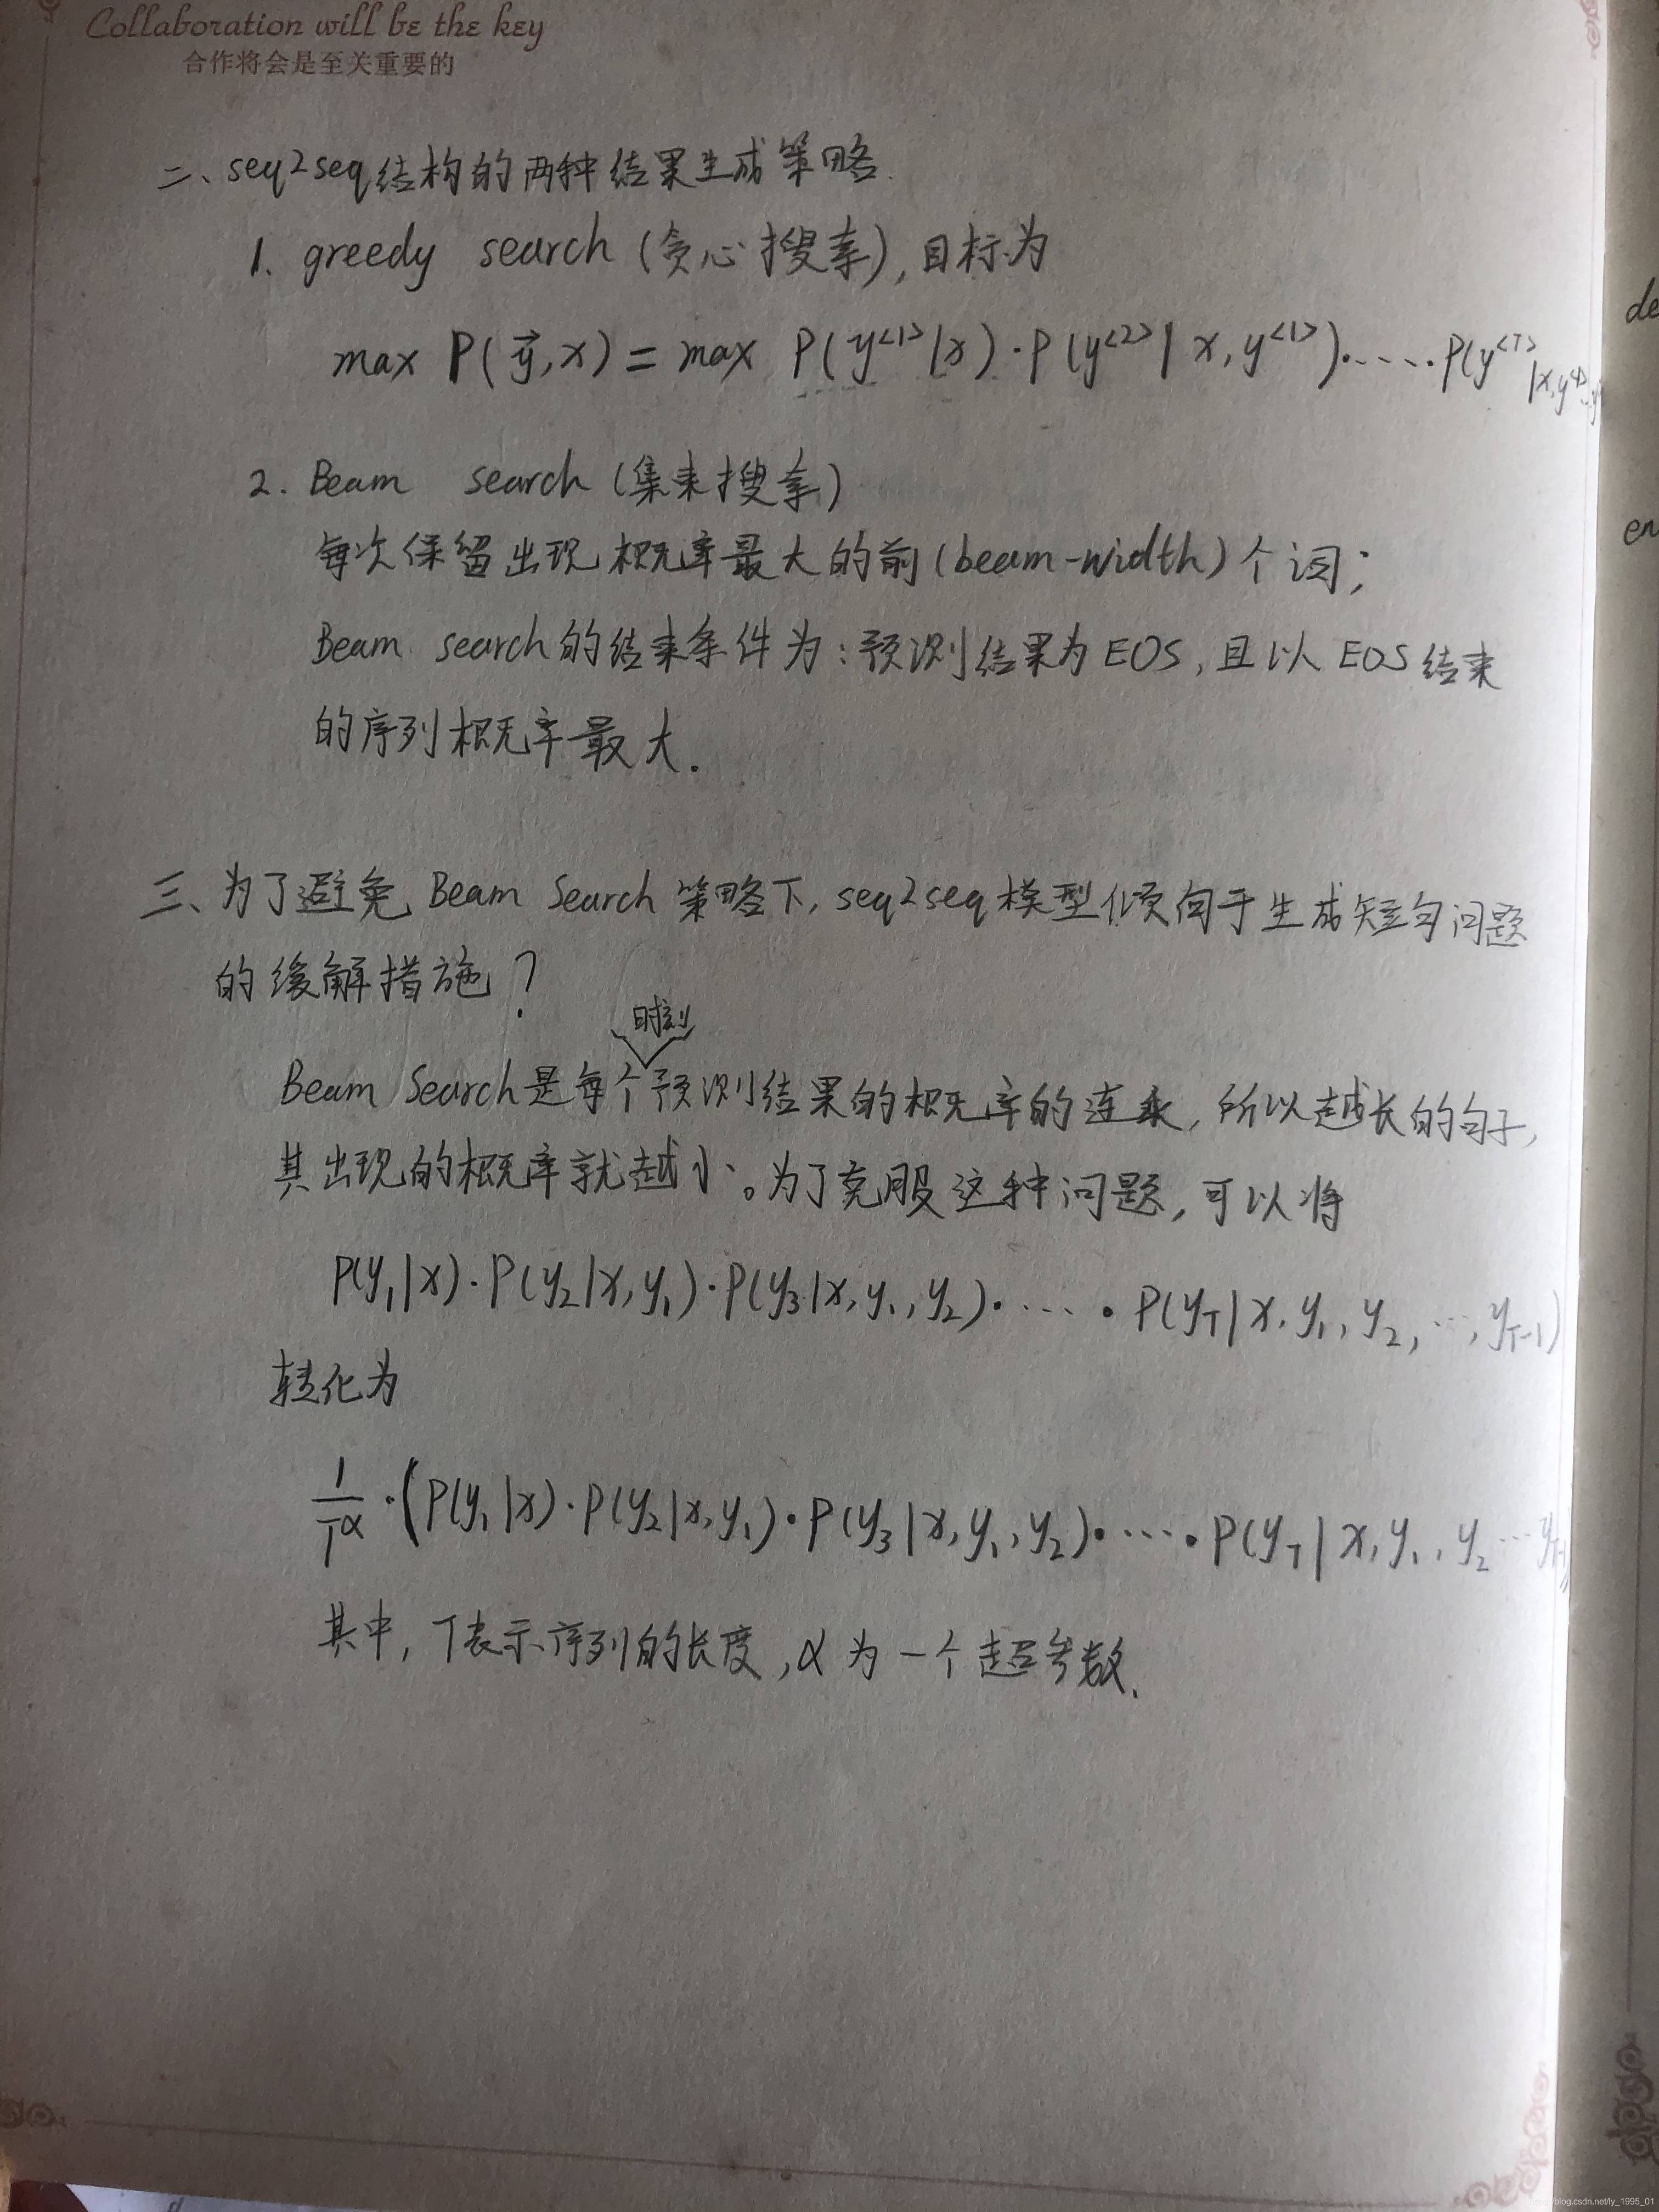 Collaboration will be the key
合作将会是至关重要的
二、seq2seq结构的两种结果生成策略.
1. greedy search (贪心搜索), 目标为
max P(y⃗,x) = max P(y<1>|x)·P(y<2>|x,y<1>)·····P(y<T>|x,y<1>
2. Beam search (集束搜索)
每次保留出现概率最大的前(beam-width)个词;
Beam search的结束条件为:预测结果为EOS,且以EOS结束
的序列概率最大.
三、为了避免 Beam Search 策略下, seq2seq模型倾向于生成短句问题
的缓解措施?
时刻
Beam Search是每个预测结果的概率的连乘,所以越长的句子,
其出现的概率就越小。为了克服这种问题,可以将
P(y₁|x)·P(y₂|x,y₁)·P(y₃|x,y₁,y₂)·····P(y_T|x,y₁,y₂,…,y_T-1)
转化为
1/T^α·(P(y₁|x)·P(y₂|x,y₁)·P(y₃|x,y₁,y₂)·····P(y_T|x,y₁,y₂…y_T-1))
其中, T表示序列的长度, α为一个超参数.
de
en
blog.csdn.net/ly_1995_01